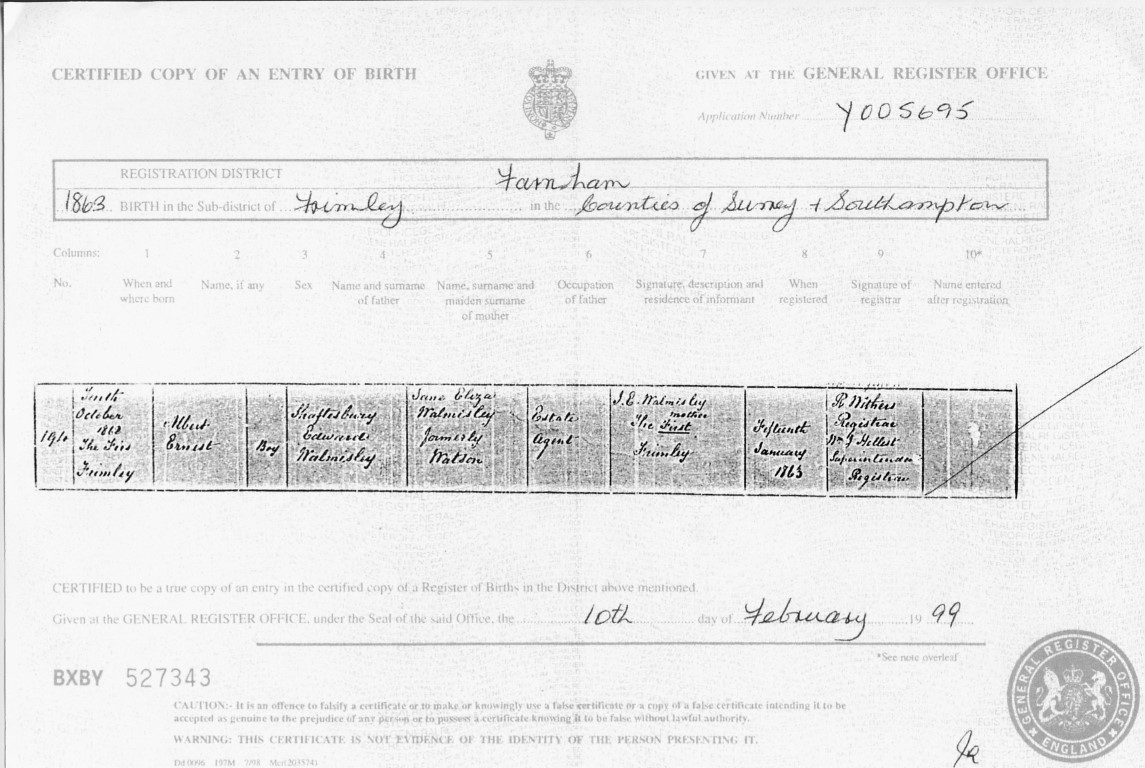 CERTIFIED COPY OF AN ENTRY OF BIRTH
GIVEN AT THE GENERAL REGISTER OFFICE
Application Number Y005695
REGISTRATION DISTRICT Farnham
1863 BIRTH in the Sub-district of Frimley in the Counties of Surrey + Southampton
Columns: 1 2 3 4 5 6 7 8 9 10*
No. When and where born Name, if any Sex Name and surname of father Name, surname and maiden surname of mother Occupation of father Signature, description and residence of informant When registered Signature of registrar Name entered after registration
Tenth
October
The Firs
Frimley
Albert
Ernest
Boy
Shaftesbury
Edward
Walmisley
Jane Eliza
Walmisley
formerly
Watson
Estate
Agent
J. E. Walmisley
mother
The First
Frimley
Fifteenth
January
1863
R Withers
Registrar
Superintendent
Registrar
CERTIFIED to be a true copy of an entry in the certified copy of a Register of Births in the District above mentioned.
Given at the GENERAL REGISTER OFFICE, under the Seal of the said Office, the 10th day of February 19 99
*See note overleaf
BXBY 527343
CAUTION:- It is an offence to falsify a certificate or to make or knowingly use a false certificate or a copy of a false certificate intending it to be
accepted as genuine to the prejudice of any person or to possess a certificate knowing it to be false without lawful authority.
WARNING: THIS CERTIFICATE IS NOT EVIDENCE OF THE IDENTITY OF THE PERSON PRESENTING IT.
GENERAL REGISTER OFFICE
ENGLAND